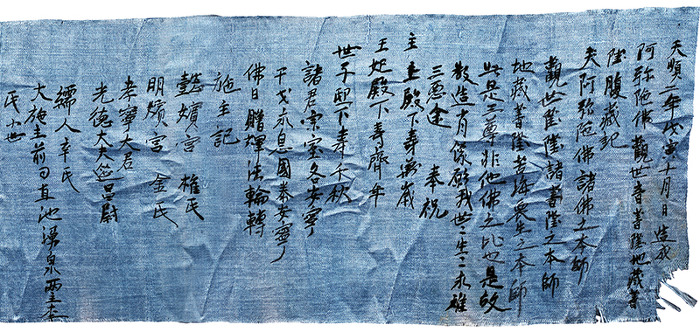 天順二年戊寅十月日造成
阿弥陁佛觀世音菩薩地藏菩
薩腹藏記
夫阿弥陁佛諸佛之本師
觀世音菩薩諸菩薩之本師
地藏菩薩菩薩衆生之本師
此是三尊非他佛之比也是故
敬造肖像願我世〻生〻永離
三惡途 奉祝
主上殿下壽萬歲
王妃殿下壽齊年
世子邸下壽千秋
諸君宗室各安寧
干戈永息國泰安寧
佛日贈輝法輪轉
施主記
懿嬪宮 權氏
明嬪宮 金氏
孝寧大君
光德大夫延昌尉
孺人辛氏
大施主前司直池湧泉兩主李
氏小世